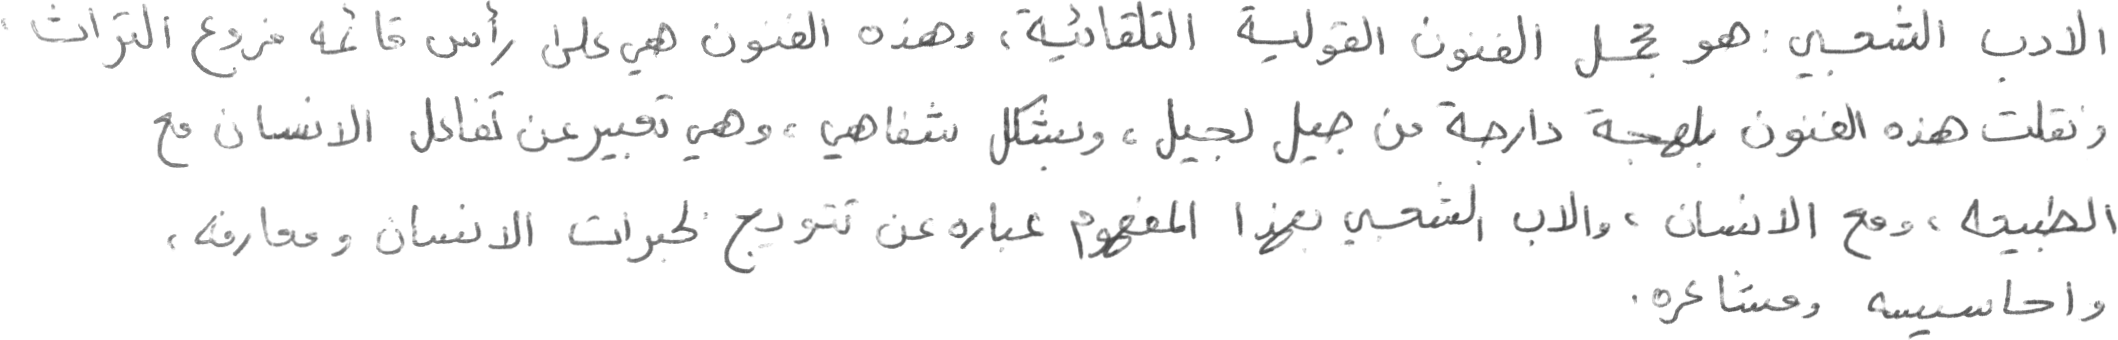 الادب الشعبي : هو مجمل الفنون القولية التلقائية ، وهذه الفنون هي على رأس قائمه فروع التراث ،
ونقلت هذه الفنون بلهجة دارجة من جيل لجيل ، وبشكل شفاهي ، وهي تعبير عن تفاعل الانسان مع
الطبيعه ، ومع الانسان ، والاب الشعبي بهذا المفهوم عباره عن تتويج لخبرات الانسان ومعارفه ،
واحاسيسه ومشاعره .